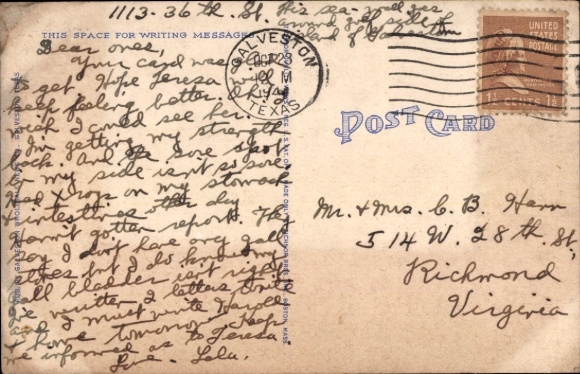 1113-36th. St. this sea-wall goes
around gulf side of
Island of Galveston
THIS SPACE FOR WRITING MESSAGES
Dear ones,
Your card was
to get. Hope Teresa will
keep feeling better. Oh, I
wish I could see her.
I'm getting my strength
back. and the sore spot
in my side isn't so sore.
Had x rays on my stomach
& intestines other day
haven't gotten report. They
say I don't have any gall
stones but I do know my
gall bladder isn't right.
I've written 2 letters
and I must write Harold
& home tomorrow. Keep
me informed as to Teresa.
Love - Lela.
GALVESTON
OCT 25
12 M
TEXAS
UNITED
STATES
POSTAGE
CENTS 1½
POST CARD
Mr. & Mrs. C. B. Hann
514 W. 28th St.
Richmond
Virginia